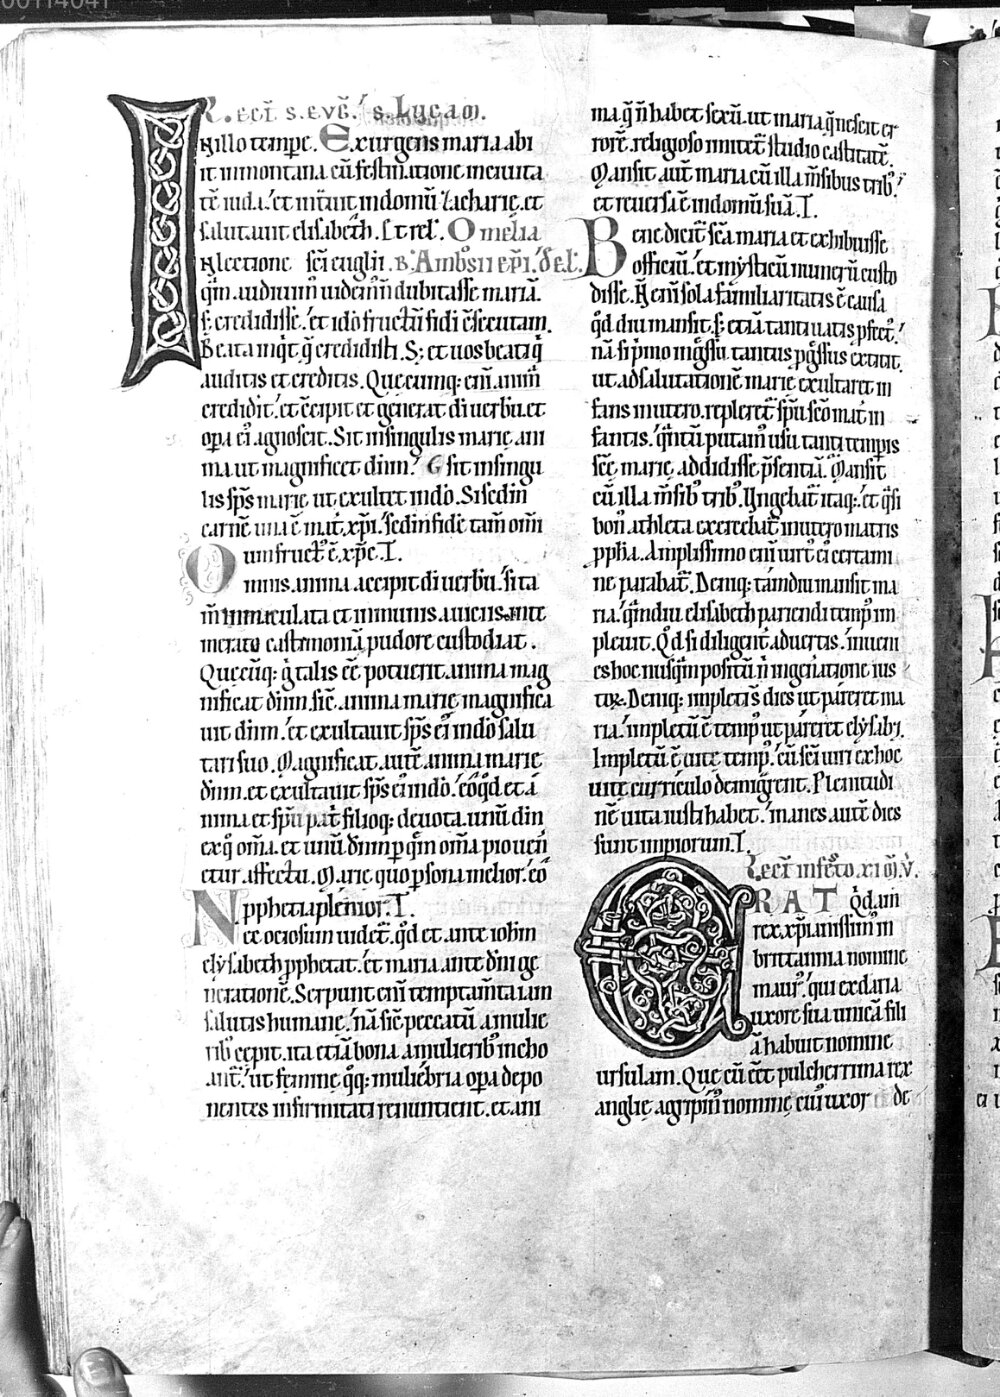 00114041
R. ecł. s. evḡ. s. Lucam.
Nillo tempr̄e. Exurgens maria abi
it in montana cū festinatione in civita
tē iuda. et int̄vit in domū zacharie. et
salutavit elisabeth. Et rel'. Omelia
N lectione sc̄i euglii. B. Ambrosii ep̄i. de l.
q̄m. audiuim᷒ uidem᷒ n̄ dubitasse mariā.
s; credidisse. et idō fructū fidi ēē secutam.
Beata inq̄t q̄ credidisti. S; et uos beati q̄
auditis et creditis. Quecumq; eni᷒ anim̄
credidit. et c̄cipit et generat di uerbū. et
opa ei᷒ agnoscit. Sit in singulis marie ani
ma ut magnificet dnm. Sit in singu
lis sp̄s marie ut exultet in dō. Si sedm
carnē una ē mat᷒ xp̄i. sedm fidē tam᷒ om̄i
um fruct᷒ ē xp̄c. I.
Omnis anima accipit di uerbū. si ta
m̄ immaculata et immunis a uiciis inte
merato castimoniā pudore custodiat.
Quecūq; g᷒ talis ēē potuerit. anima mag
nificat dnm. sic̄ anima marie magnifica
uit dnm. et exultauit sp̄s ei᷒ in dō salu
tari suo. Magnificat autē anima marie
dnm. et exultauit sp̄s ei᷒ in dō. eo q̄d et a
nima et sp̄u pat᷒ filioq; deuota. unū dm
ex q̄ om̄a. et unū dnm p quē om̄a pio uen
etur affectu. Marie quo psona melior. eo
pphetia plenior. I.
Nec ociosum uidet᷒. q̄d et ante iohm
elysabeth pphetat. et maria ante dn̄i ge
nerationē. Serpunt eni᷒ temptam̄ta iam
salutis humane. nā sic̄ peccatū a mulie
rib᷒ cepit. ita etiā bona a mulierib᷒ incho
ant᷒. ut femine q̄q; muliebria opa depo
nentes infirmitati renuntient. et ani
ma q̄ n̄ habet sexū. ut maria q̄ nescit er
rorē. religioso imitet᷒ studio castitatē.
Mansit aut̄ maria cū illa m̄sibus trib᷒.
et reuersa ē in domū suā. I.
Bene dicit᷒ sc̄a maria et exhibuisse
officiū. et mysticū numerū custo
disse. N eni᷒ sola familiaritatis ē causa
q̄d diu mansit. s; etiā tanti uatis pfect᷒.
nā si pimo ing᷒ssu. tantus pg᷒ssus extitit.
ut ad salutationē marie exultaret in
fans in utero. repleret᷒ sp̄u sc̄o mat᷒ in
fantis. q̄ntū putam᷒ usu tanti temporis
sc̄e marie addidisse p̄sentiā. Mansit
cū illa m̄sib᷒ trib᷒. Ungebat᷒ itaq;. et q̄si
bon᷒ athleta exercebat᷒ in utero matris
ppha. Amplissimo eni᷒ uirt᷒ ei᷒ certami
ne parabat᷒. Deniq; tamdiu mansit ma
ria. q̄mdiu elisabeth pariendi temp᷒ im
pleuit. Qd si diligent᷒ aduertis. inueni
es hoc nusq̄m positū n̄ in generatione ius
tor᷒. Deniq; impleti s̄ dies ut pareret ma
ria. impletū ē temp᷒ ut pareret elysabz.
Impletū ē uite temp᷒. cū sc̄i uiri ex hoc
uite curriculo demig᷒rent. Plenitudi
nē uita iusti habet. inanes autē dies
sunt impiorum. I.
R. ecl᷒ in festo. xi m̄. v̄.
ERAT q̄dam
rex xp̄ianissim᷒ in
brittannia nomine
maur᷒. qui ex daria
uxore sua unicā fili
ā habuit nomine
ursulam. Que cū ēēt pulcherrima rex
anglie agripin᷒ nomine cui᷒ uxor de